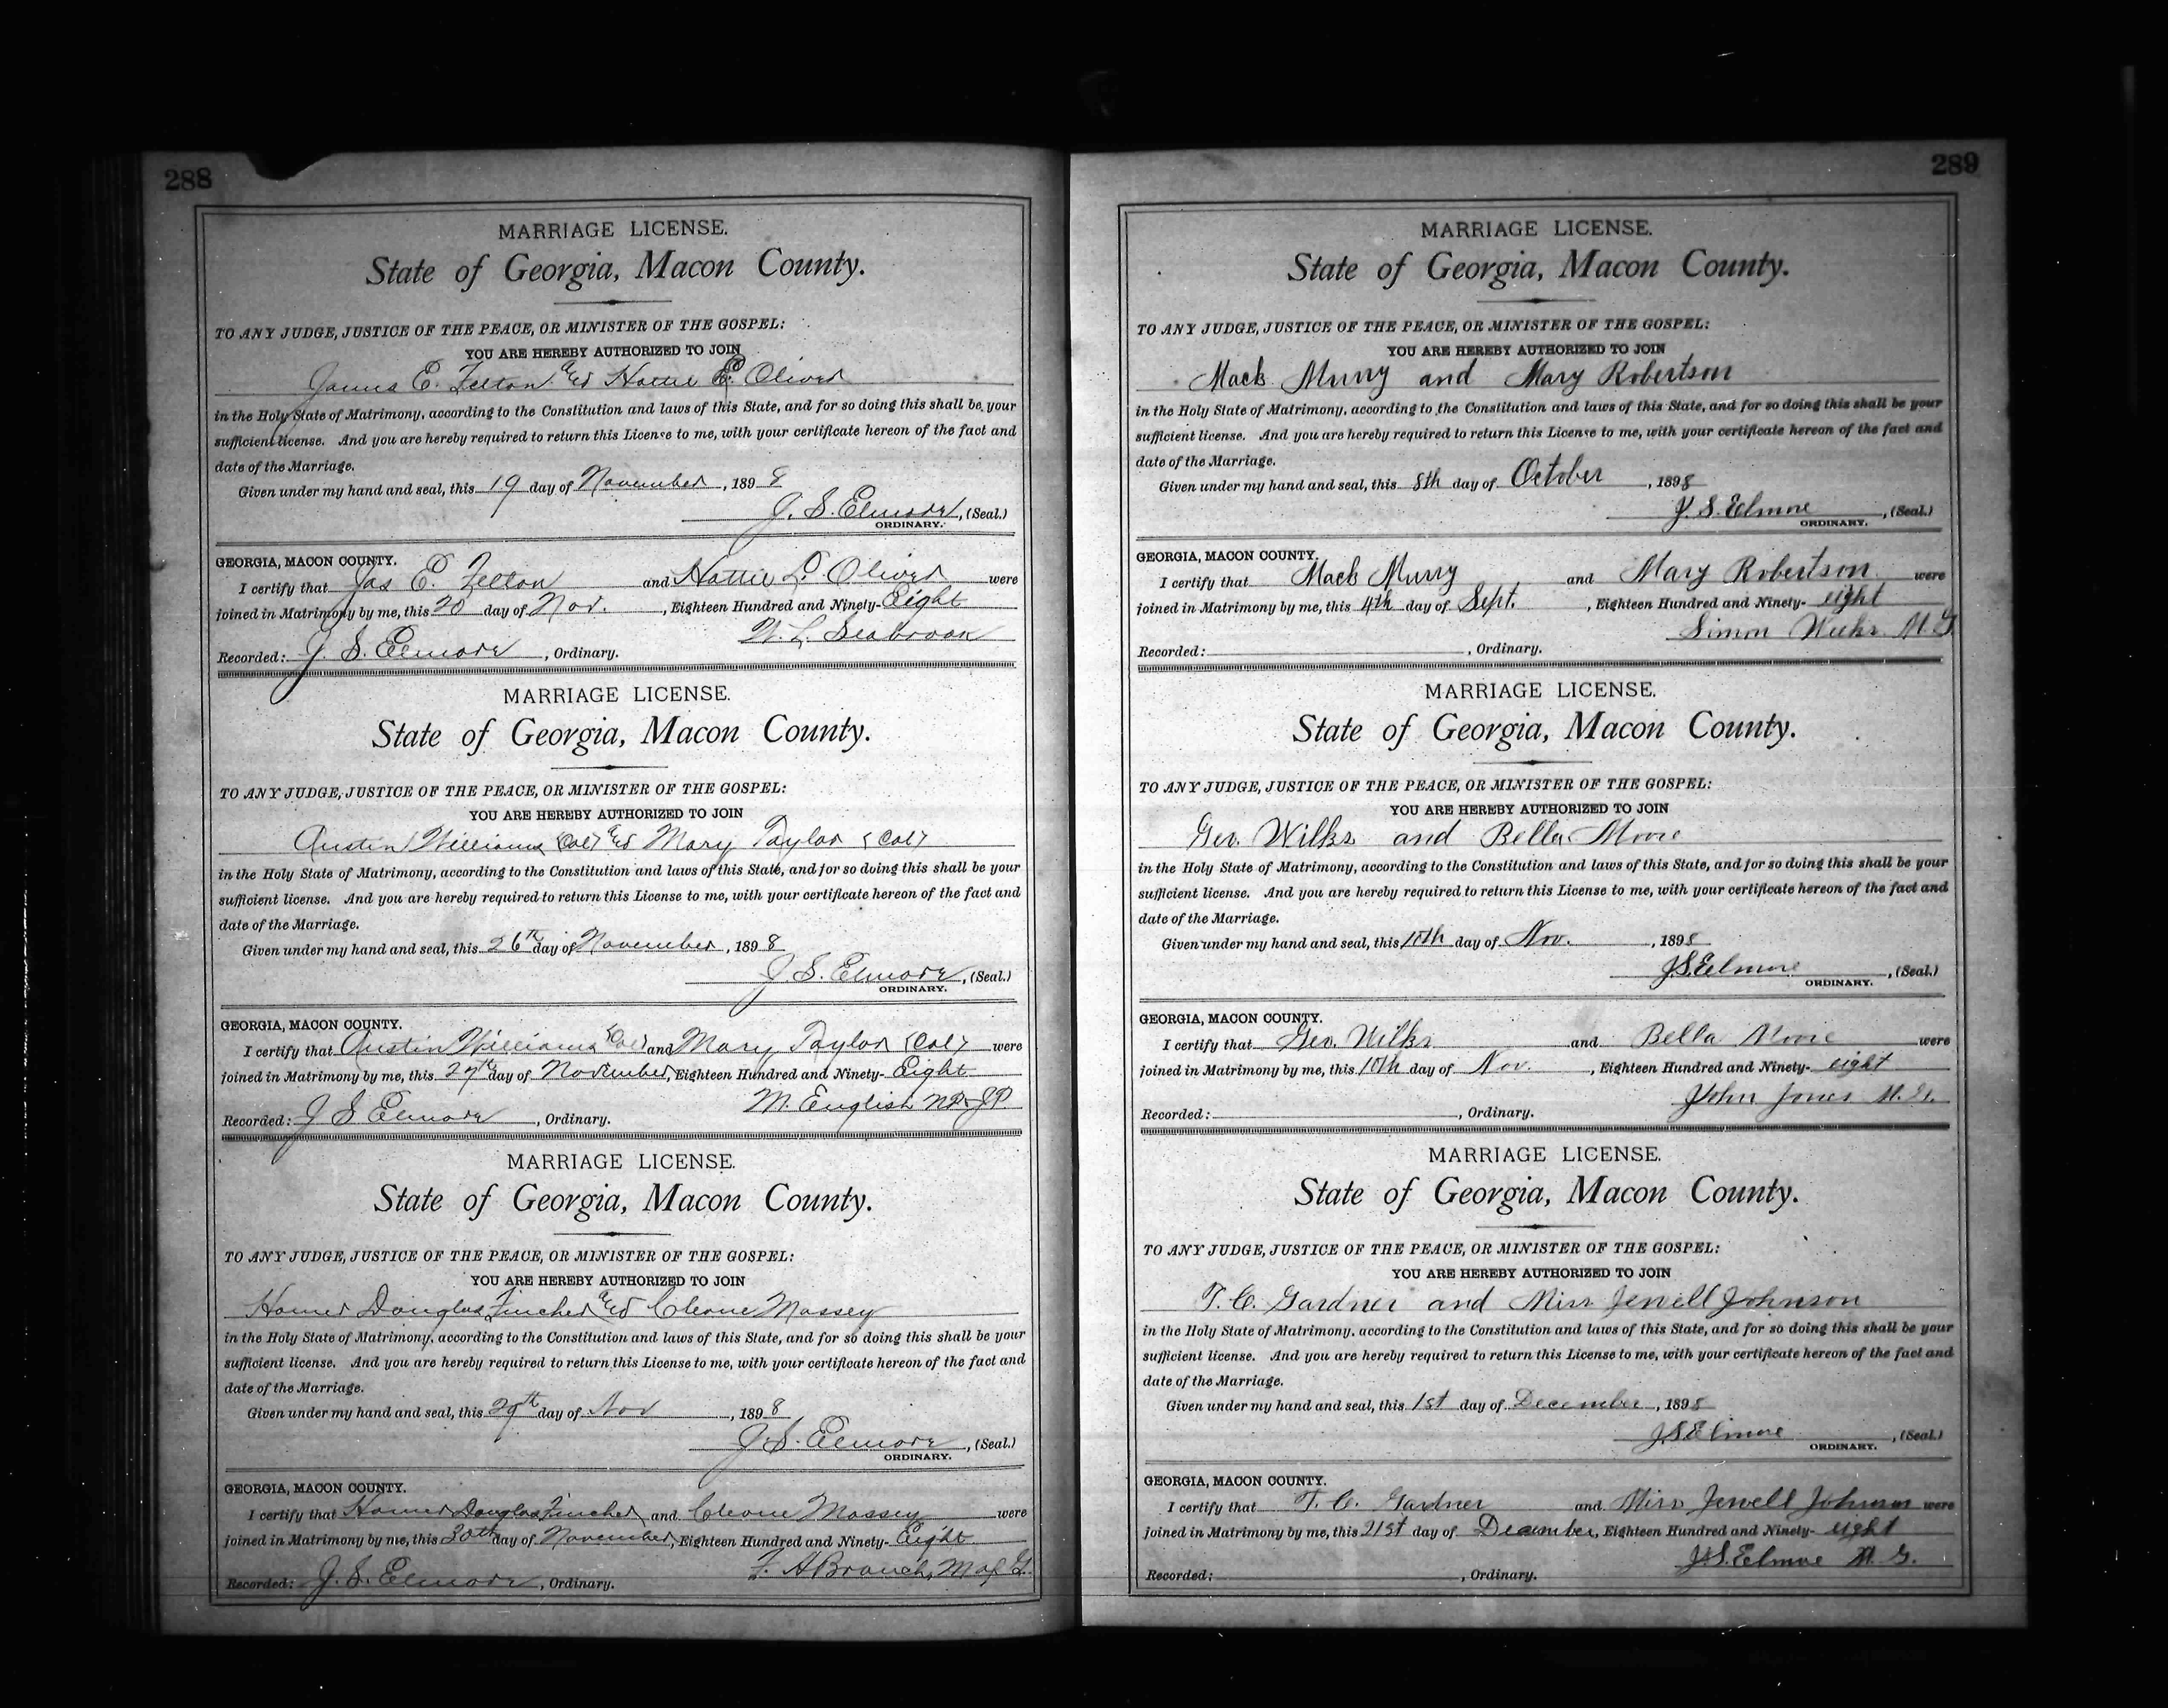 288
MARRIAGE LICENSE.
State of Georgia, Macon County.
TO ANY JUDGE, JUSTICE OF THE PEACE, OR MINISTER OF THE GOSPEL:
YOU ARE HEREBY AUTHORIZED TO JOIN
James E. Felton and Hattie E. Oliver
in the Holy State of Matrimony, according to the Constitution and laws of this State, and for so doing this shall be your
sufficient license. And you are hereby required to return this License to me, with your certificate hereon of the fact and
date of the Marriage.
Given under my hand and seal, this 19 day of November, 1898
J. S. Elmore, (Seal.)
ORDINARY.
GEORGIA, MACON COUNTY.
I certify that Jas E. Felton and Hattie L. Oliver were
joined in Matrimony by me, this 20 day of Nov., Eighteen Hundred and Ninety-Eight
W. L. Seabrook
Recorded: J. S. Elmore, Ordinary.
MARRIAGE LICENSE.
State of Georgia, Macon County.
TO ANY JUDGE, JUSTICE OF THE PEACE, OR MINISTER OF THE GOSPEL:
YOU ARE HEREBY AUTHORIZED TO JOIN
Austin Williams (Col) and Mary Taylor (Col)
in the Holy State of Matrimony, according to the Constitution and laws of this State, and for so doing this shall be your
sufficient license. And you are hereby required to return this License to me, with your certificate hereon of the fact and
date of the Marriage.
Given under my hand and seal, this 26th day of November, 1898
J. S. Elmore, (Seal.)
ORDINARY.
GEORGIA, MACON COUNTY.
I certify that Austin Williams (Col) and Mary Taylor (Col) were
joined in Matrimony by me, this 27th day of November, Eighteen Hundred and Ninety-Eight
M. English N.P. & J.P.
Recorded: J S Elmore, Ordinary.
MARRIAGE LICENSE.
State of Georgia, Macon County.
TO ANY JUDGE, JUSTICE OF THE PEACE, OR MINISTER OF THE GOSPEL:
YOU ARE HEREBY AUTHORIZED TO JOIN
Homer Douglas Fincher and Cleone Massey
in the Holy State of Matrimony, according to the Constitution and laws of this State, and for so doing this shall be your
sufficient license. And you are hereby required to return this License to me, with your certificate hereon of the fact and
date of the Marriage.
Given under my hand and seal, this 29th day of Nov, 1898
J. S. Elmore, (Seal.)
ORDINARY.
GEORGIA, MACON COUNTY.
I certify that Homer Douglas Fincher and Cleone Massey were
joined in Matrimony by me, this 30th day of November, Eighteen Hundred and Ninety-Eight
F. A Branch, M of G.
Recorded: J. S. Elmore, Ordinary.
289
MARRIAGE LICENSE.
State of Georgia, Macon County.
TO ANY JUDGE, JUSTICE OF THE PEACE, OR MINISTER OF THE GOSPEL:
YOU ARE HEREBY AUTHORIZED TO JOIN
Mack Murry and Mary Robertson
in the Holy State of Matrimony, according to the Constitution and laws of this State, and for so doing this shall be your
sufficient license. And you are hereby required to return this License to me, with your certificate hereon of the fact and
date of the Marriage.
Given under my hand and seal, this 8th day of October, 1898
J. S. Elmore, (Seal.)
ORDINARY.
GEORGIA, MACON COUNTY.
I certify that Mack Murry and Mary Robertson were
joined in Matrimony by me, this 4th day of Sept., Eighteen Hundred and Ninety-eight
Simon Weeks M.G.
Recorded: , Ordinary.
MARRIAGE LICENSE.
State of Georgia, Macon County.
TO ANY JUDGE, JUSTICE OF THE PEACE, OR MINISTER OF THE GOSPEL:
YOU ARE HEREBY AUTHORIZED TO JOIN
Geo. Wilks and Bella Moore
in the Holy State of Matrimony, according to the Constitution and laws of this State, and for so doing this shall be your
sufficient license. And you are hereby required to return this License to me, with your certificate hereon of the fact and
date of the Marriage.
Given under my hand and seal, this 10th day of Nov., 1898
J.S. Elmore, (Seal.)
ORDINARY.
GEORGIA, MACON COUNTY.
I certify that Geo. Wilks and Bella Moore were
joined in Matrimony by me, this 10th day of Nov., Eighteen Hundred and Ninety-eight
John Jones M.G.
Recorded: , Ordinary.
MARRIAGE LICENSE.
State of Georgia, Macon County.
TO ANY JUDGE, JUSTICE OF THE PEACE, OR MINISTER OF THE GOSPEL:
YOU ARE HEREBY AUTHORIZED TO JOIN
T. C. Gardner and Miss Jewell Johnson
in the Holy State of Matrimony, according to the Constitution and laws of this State, and for so doing this shall be your
sufficient license. And you are hereby required to return this License to me, with your certificate hereon of the fact and
date of the Marriage.
Given under my hand and seal, this 1st day of December, 1898
J.S. Elmore, (Seal.)
ORDINARY.
GEORGIA, MACON COUNTY.
I certify that T. C. Gardner and Miss Jewell Johnson were
joined in Matrimony by me, this 21st day of December, Eighteen Hundred and Ninety-eight
J.S. Elmore M.G.
Recorded: , Ordinary.